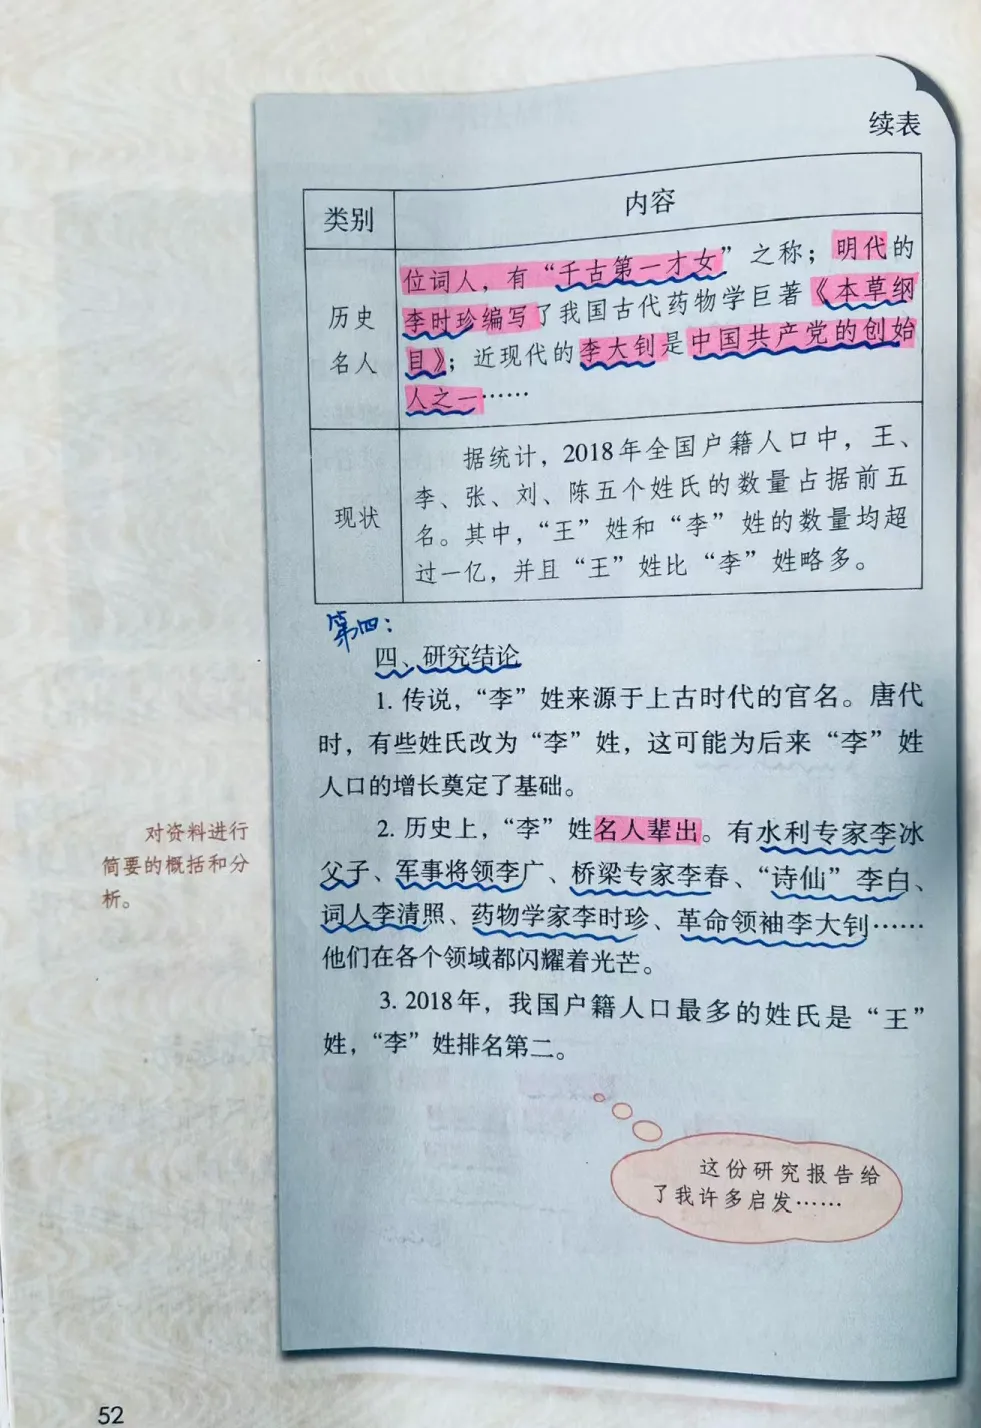 续表
类别 内容
历史
名人
位词人，有“千古第一才女”之称；明代的
李时珍编写了我国古代药物学巨著《本草纲
目》；近现代的李大钊是中国共产党的创始
人之一……
现状
据统计，2018年全国户籍人口中，王、
李、张、刘、陈五个姓氏的数量占据前五
名。其中，“王”姓和“李”姓的数量均超
过一亿，并且“王”姓比“李”姓略多。
第四：
四、研究结论
1. 传说，“李”姓来源于上古时代的官名。唐代
时，有些姓氏改为“李”姓，这可能为后来“李”姓
人口的增长奠定了基础。
2. 历史上，“李”姓名人辈出。有水利专家李冰
父子、军事将领李广、桥梁专家李春、“诗仙”李白、
词人李清照、药物学家李时珍、革命领袖李大钊……
他们在各个领域都闪耀着光芒。
3. 2018年，我国户籍人口最多的姓氏是“王”
姓，“李”姓排名第二。
对资料进行
简要的概括和分
析。
这份研究报告给
了我许多启发……
52